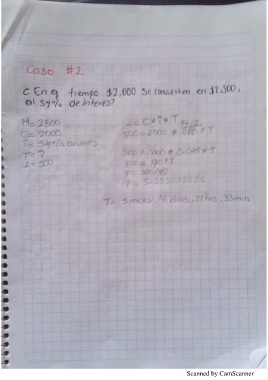 Caso #2
¿En q tiempo $2,000 se convierten en $2,500,
al 54% de interés?
M= 2500
C= 2000
i= 54% anual
T= ?
I= 500
I = C*i*T
500=2000 *
500=2000 * 0.045 * T
500= 90*T
T= 500/90
T= 5.5555555556
T= 5 meses, 16 días,
Scanned by CamScanner